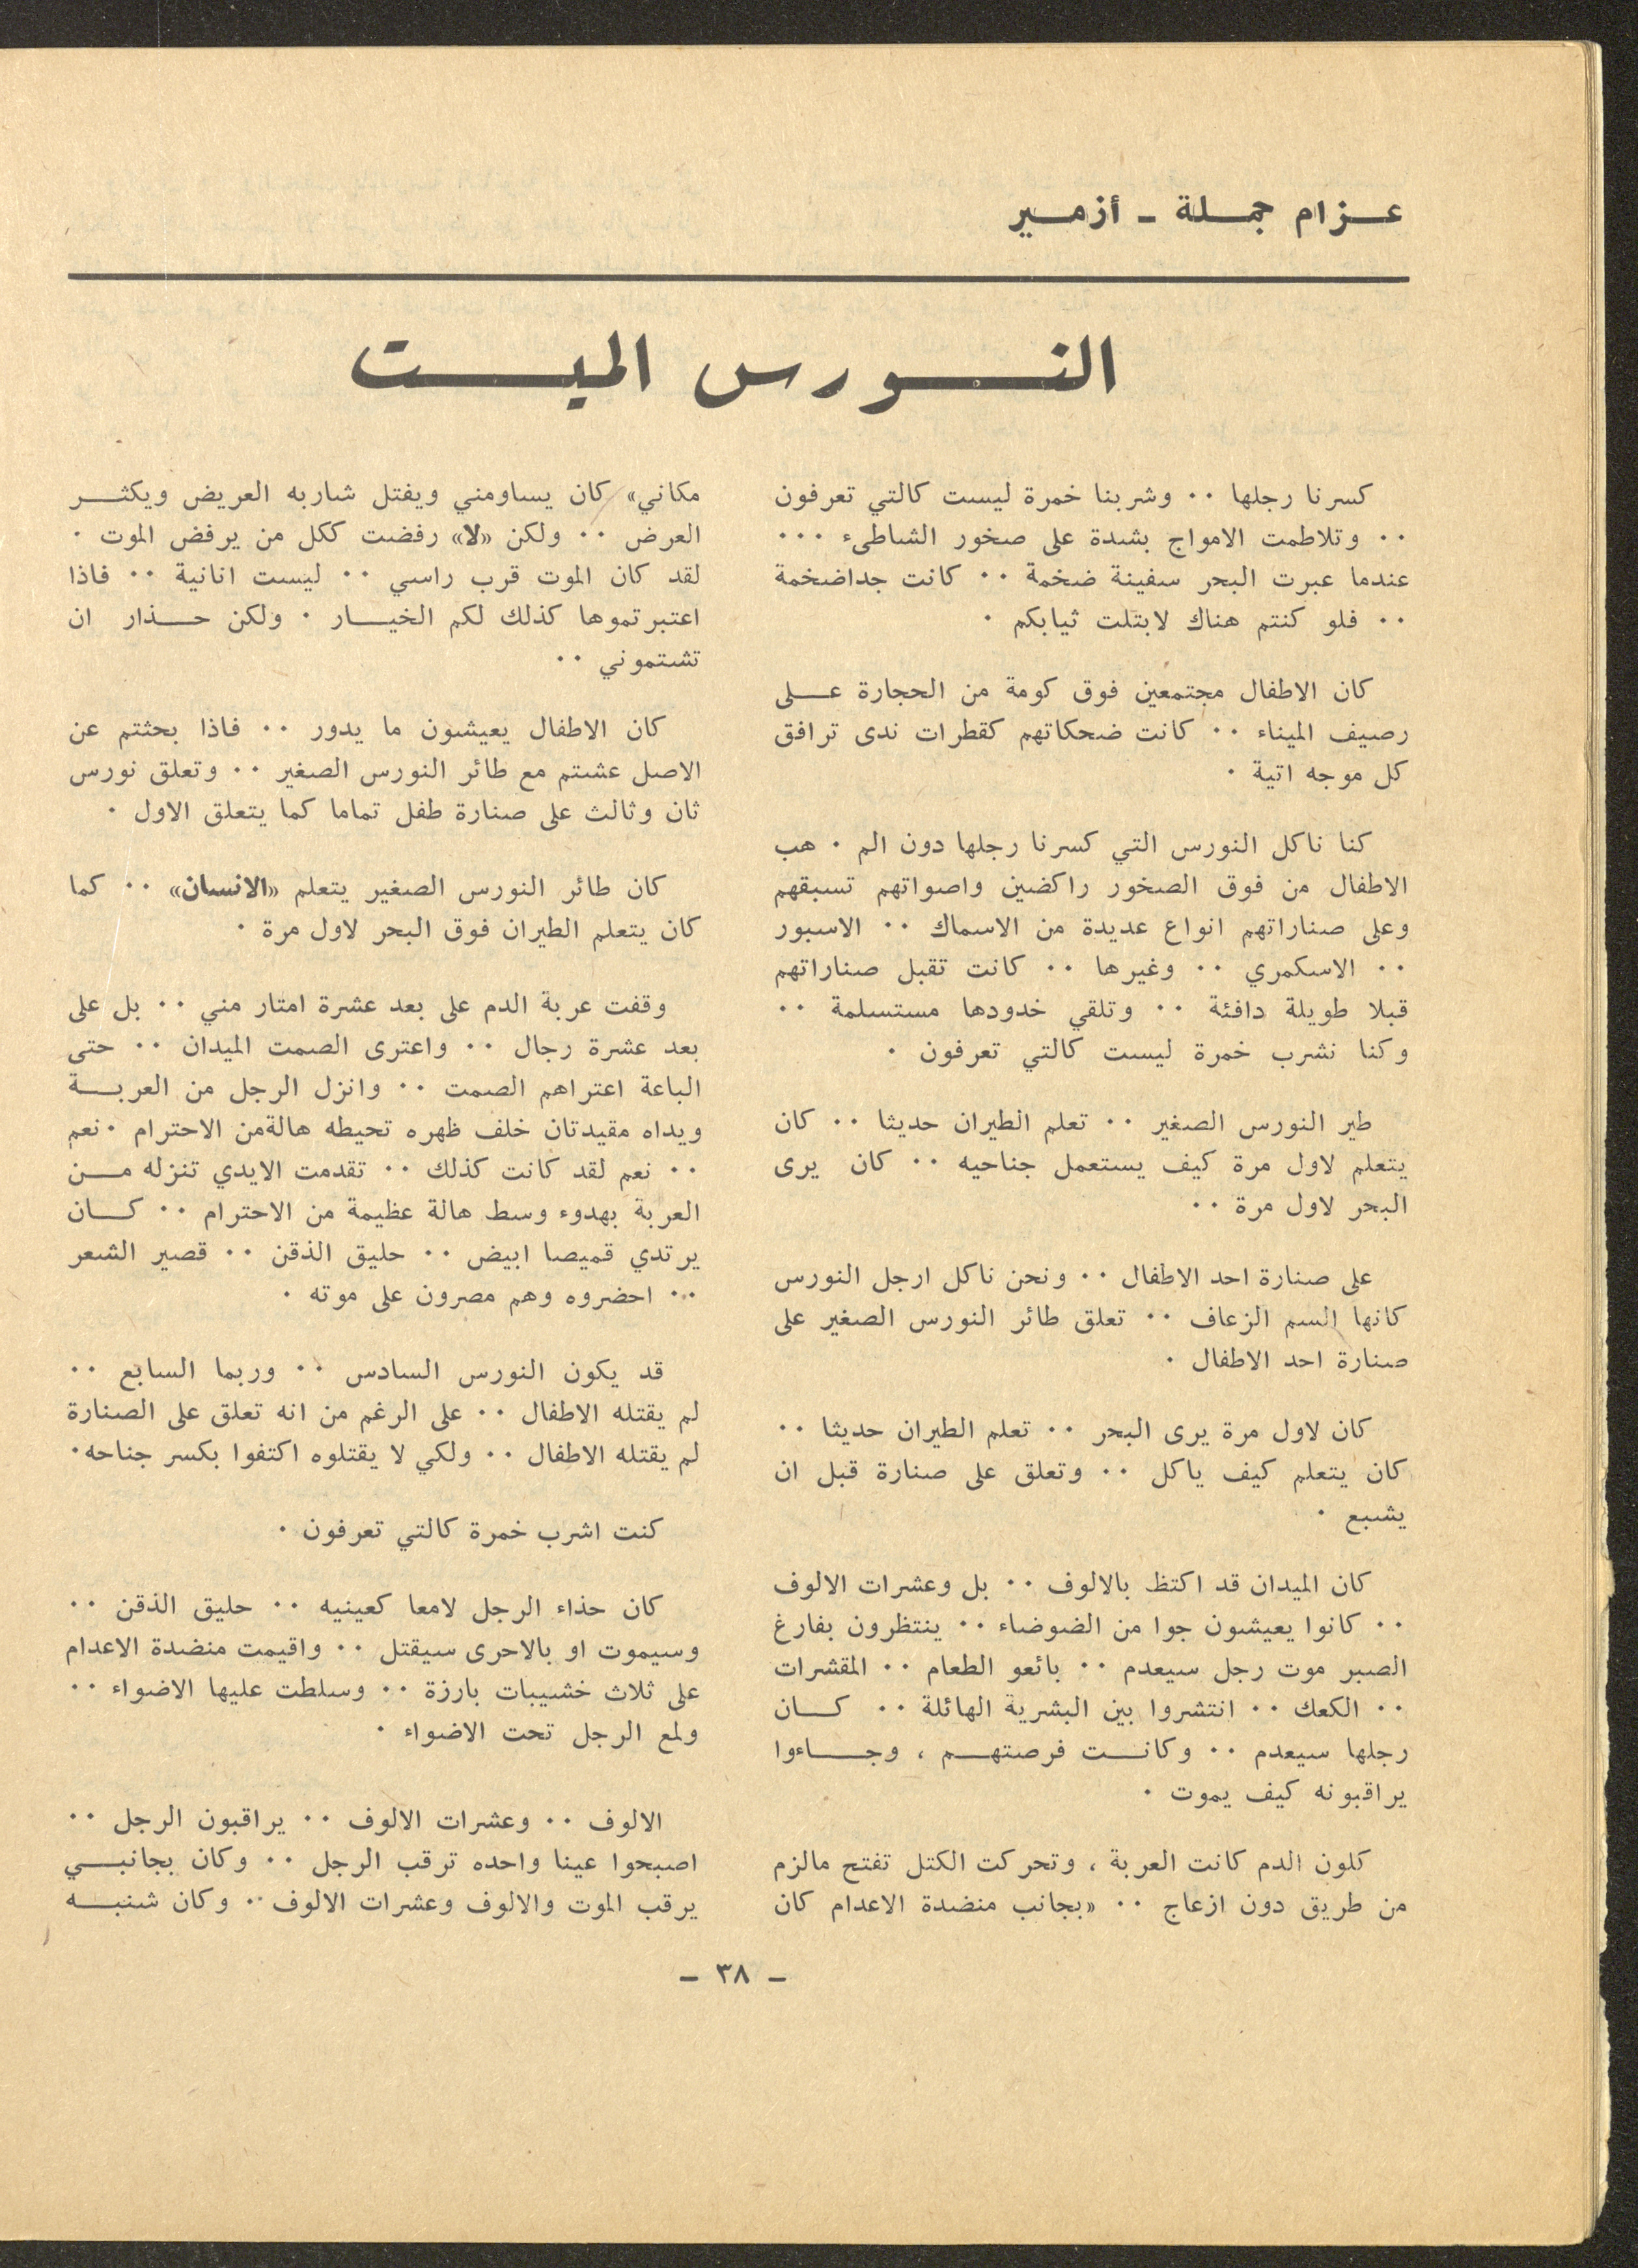 عزام جملة - أزمير
النورس الميت
كسرنا رجلها ٠٠ وشربنا خمرة ليست كالتي تعرفون
٠٠ وتلاطمت الامواج بشدة على صخور الشاطىء ٠٠٠
عندما عبرت البحر سفينة ضخمة ٠٠ كانت جداضخمة
٠٠ فلو كنتم هناك لابتلت ثيابكم ٠
كان الاطفال مجتمعين فوق كومة من الحجارة على
رصيف الميناء ٠٠ كانت ضحكاتهم كقطرات ندى ترافق
كل موجه اتية ٠
كنا ناكل النورس التي كسرنا رجلها دون الم ٠ هب
الاطفال من فوق الصخور راكضين واصواتهم تسبقهم
وعلى صناراتهم انواع عديدة من الاسماك ٠٠ الاسبور
٠٠ الاسكمري ٠٠ وغيرها ٠٠ كانت تقبل صناراتهم
قبلا طويلة دافئة ٠٠ وتلقي خدودها مستسلمة ٠٠
وكنا نشرب خمرة ليست كالتي تعرفون ٠
طير النورس الصغير ٠٠ تعلم الطيران حديثا ٠٠ كان
يتعلم لاول مرة كيف يستعمل جناحيه ٠٠ كان يرى
البحر لاول مرة ٠٠
على صنارة احد الاطفال ٠٠ ونحن ناكل ارجل النورس
كانها السم الزعاف ٠٠ تعلق طائر النورس الصغير على
صنارة احد الاطفال ٠
كان لاول مرة يرى البحر ٠٠ تعلم الطيران حديثا ٠٠
كان يتعلم كيف ياكل ٠٠ وتعلق على صنارة قبل ان
يشبع ٠
كان الميدان قد اكتظ بالالوف ٠٠ بل وعشرات الالوف
٠٠ كانوا يعيشون جوا من الضوضاء ٠٠ ينتظرون بفارغ
الصبر موت رجل سيعدم ٠٠ بائعو الطعام ٠٠ المقشرات
٠٠ الكعك ٠٠ انتشروا بين البشرية الهائلة ٠٠ كان
رجلها سيعدم ٠٠ وكانت فرصتهم ، وجاءوا
يراقبونه كيف يموت ٠
كلون الدم كانت العربة ، وتحركت الكتل تفتح مالزم
من طريق دون ازعاج ٠٠ «بجانب منضدة الاعدام كان
مكاني» كان يساومني ويفتل شاربه العريض ويكثر
العرض ٠٠ ولكن «لا» رفضت ككل من يرفض الموت ٠
لقد كان الموت قرب راسي ٠٠ ليست انانية ٠٠ فاذا
اعتبرتموها كذلك لكم الخيار ٠ ولكن حذار ان
تشتموني ٠٠
كان الاطفال يعيشون ما يدور ٠٠ فاذا بحثتم عن
الاصل عشتم مع طائر النورس الصغير ٠٠ وتعلق نورس
ثان وثالث على صنارة طفل تماما كما يتعلق الاول ٠
كان طائر النورس الصغير يتعلم «الانسان» ٠٠ كما
كان يتعلم الطيران فوق البحر لاول مرة ٠
وقفت عربة الدم على بعد عشرة امتار مني ٠٠ بل على
بعد عشرة رجال ٠٠ واعترى الصمت الميدان ٠٠ حتى
الباعة اعتراهم الصمت ٠٠ وانزل الرجل من العربة
ويداه مقيدتان خلف ظهره تحيطه هالةمن الاحترام ٠ نعم
٠٠ نعم لقد كانت كذلك ٠٠ تقدمت الايدي تنزله من
العربة بهدوء وسط هالة عظيمة من الاحترام ٠٠ كان
يرتدي قميصا ابيض ٠٠ حليق الذقن ٠٠ قصير الشعر
٠٠ احضروه وهم مصرون على موته ٠
قد يكون النورس السادس ٠٠ وربما السابع ٠٠
لم يقتله الاطفال ٠٠ على الرغم من انه تعلق على الصنارة
لم يقتله الاطفال ٠٠ ولكي لا يقتلوه اكتفوا بكسر جناحه٠
كنت اشرب خمرة كالتي تعرفون ٠
كان حذاء الرجل لامعا كعينيه ٠٠ حليق الذقن ٠٠
وسيموت او بالاحرى سيقتل ٠٠ واقيمت منضدة الاعدام
على ثلاث خشيبات بارزة ٠٠ وسلطت عليها الاضواء ٠٠
ولمع الرجل تحت الاضواء ٠
الالوف ٠٠ وعشرات الالوف ٠٠ يراقبون الرجل ٠٠
اصبحوا عينا واحده ترقب الرجل ٠٠ وكان بجانبي
يرقب الموت والالوف وعشرات الالوف ٠٠ وكان شنبه
- ٣٨ -